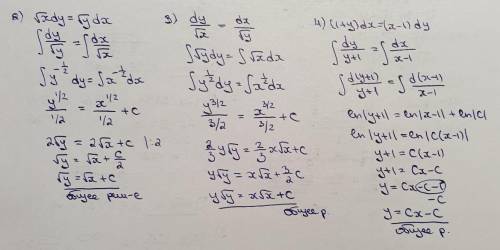 2) √x dy = √y dx
∫ dy/√y = ∫ dx/√x
∫ y^(-1/2) dy = ∫ x^(-1/2) dx
y^(1/2)/(1/2) = x^(1/2)/(1/2) + C
2√y = 2√x + C |:2
√y = √x + C/2
√y = √x + C
общее реш-е
3) dy/√x = dx/√y
∫√y dy = ∫√x dx
∫ y^(1/2) dy = ∫ x^(1/2) dx
y^(3/2)/(3/2) = x^(3/2)/(3/2) + C
2/3 y√y = 2/3 x√x + C
y√y = x√x + 3/2 C
y√y = x√x + C
общее р.
4) (1+y)dx = (x-1)dy
∫ dy/(y+1) = ∫ dx/(x-1)
∫ d(y+1)/(y+1) = ∫ d(x-1)/(x-1)
ln|y+1| = ln|x-1| + ln|C|
ln|y+1| = ln|C(x-1)|
y+1 = C(x-1)
y+1 = Cx-C
y = Cx -C-1
-C
y = Cx-C
общее р.